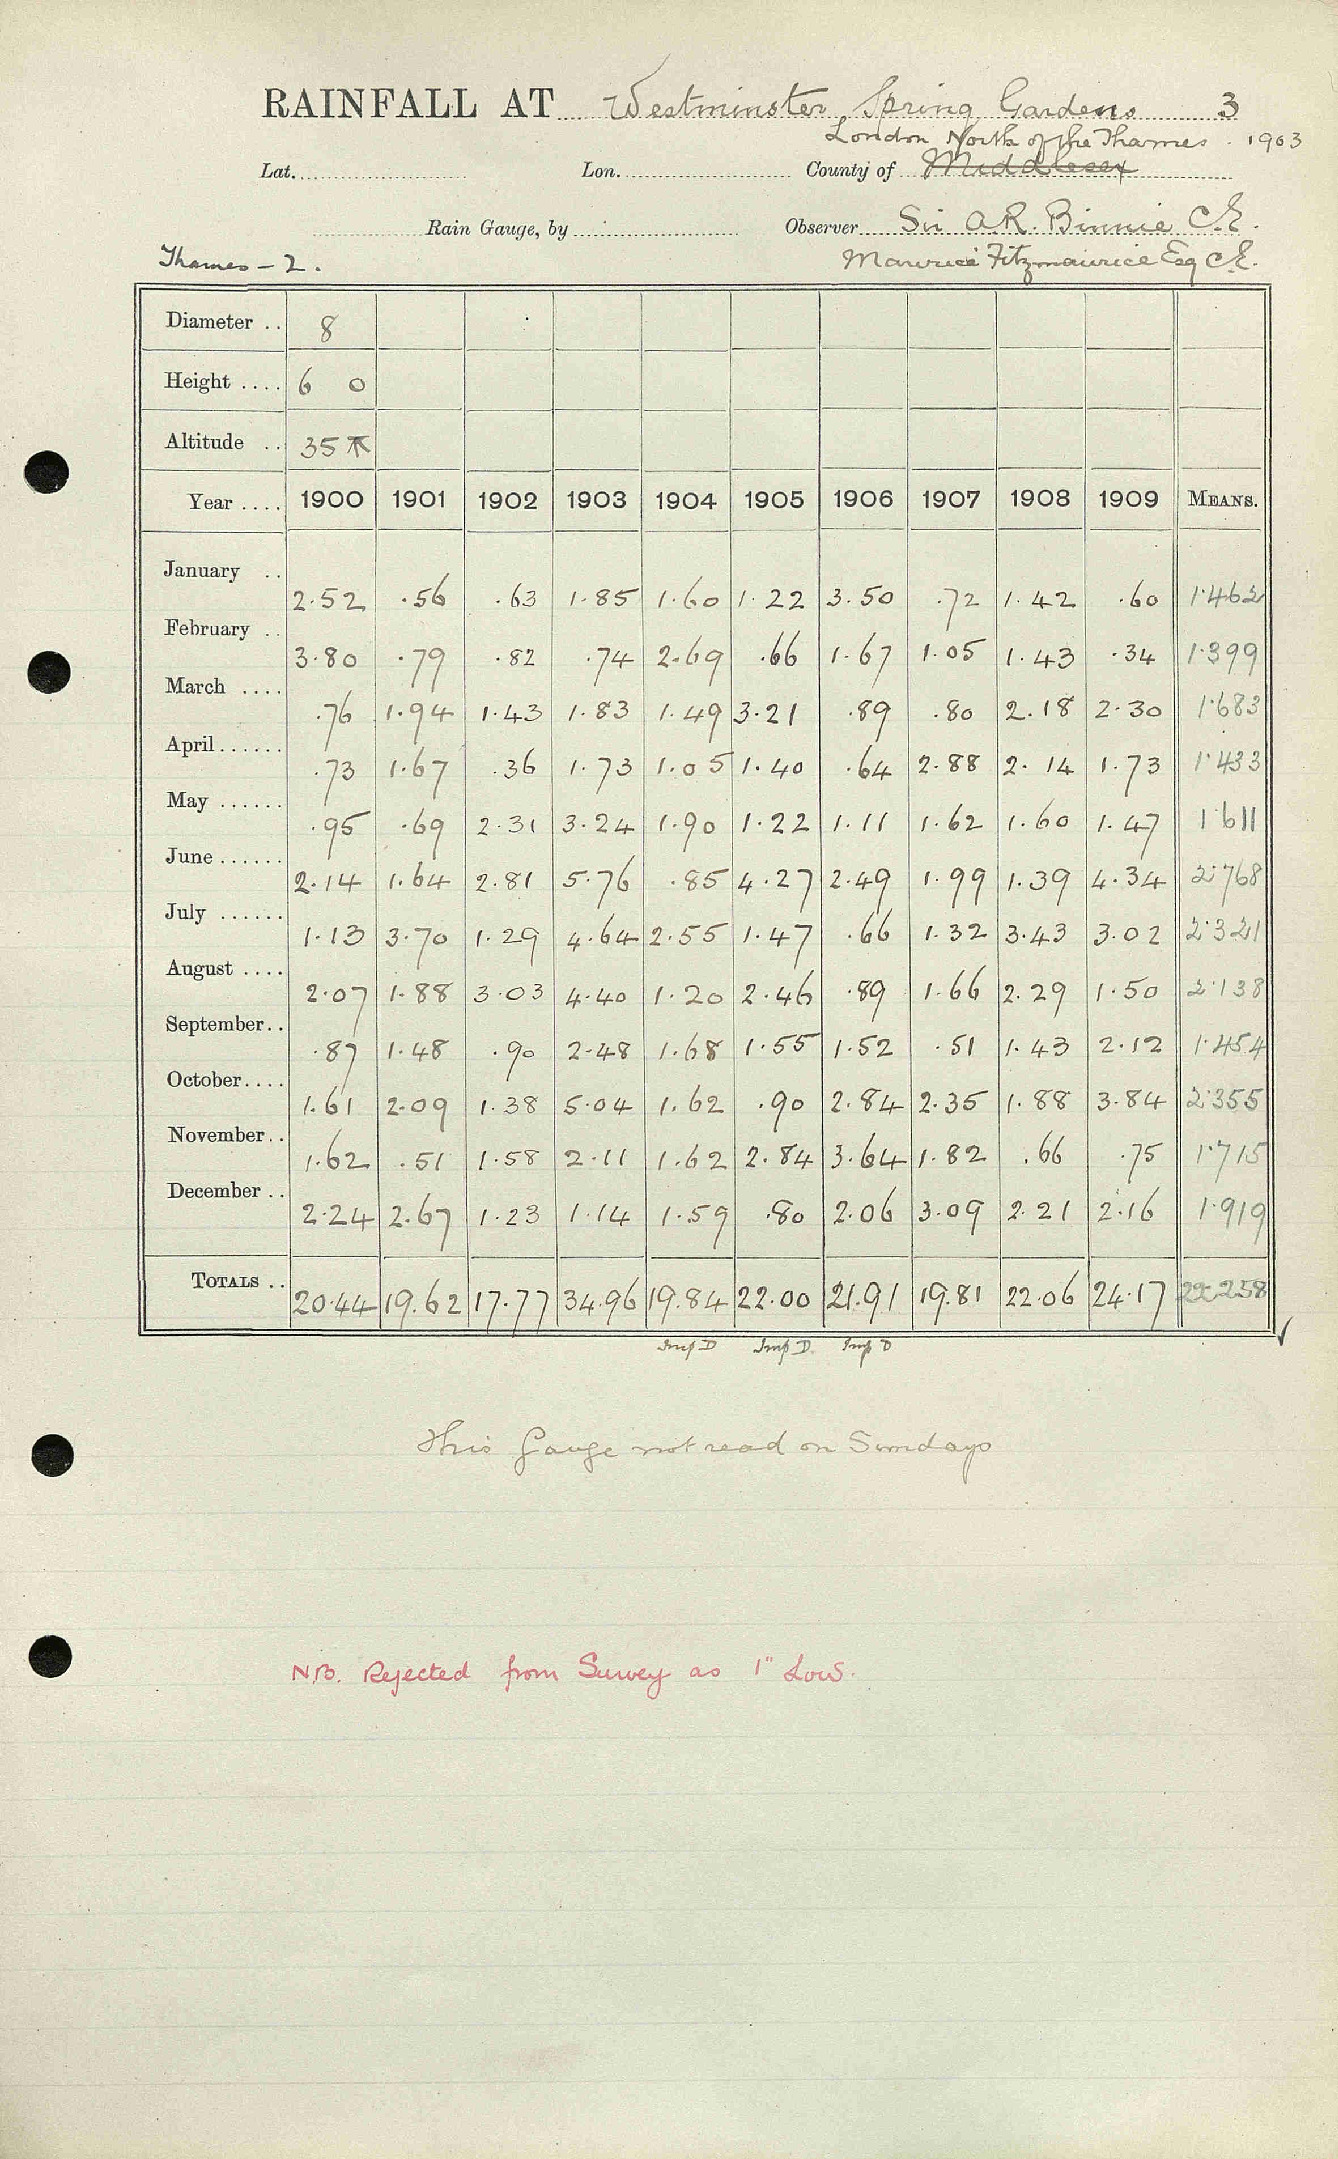 RAINFALL AT Westminster Spring Gardens 3
London North of the Thames . 1903
Lat. Lon. County of Middlesex
Rain Gauge, by Observer Sir A R. Binnie C.E.
Thames - 2. Maurice Fitzmaurice Esq C.E.
Diameter .. 8
Height .... 6 0
Altitude .. 35
Year .... 1900 1901 1902 1903 1904 1905 1906 1907 1908 1909 MEANS.
January .. 2.52 .56 .63 1.85 1.60 1.22 3.50 .72 1.42 .60 1.462
February .. 3.80 .79 .82 .74 2.69 .66 1.67 1.05 1.43 .34 1.399
March .... .76 1.94 1.43 1.83 1.49 3.21 .89 .80 2.18 2.30 1.683
April ...... .73 1.67 .36 1.73 1.05 1.40 .64 2.88 2.14 1.73 1.433
May ...... .95 .69 2.31 3.24 1.90 1.22 1.11 1.62 1.60 1.47 1.611
June ...... 2.14 1.64 2.81 5.76 .85 4.27 2.49 1.99 1.39 4.34 2.768
July ...... 1.13 3.70 1.29 4.64 2.55 1.47 .66 1.32 3.43 3.02 2.321
August .... 2.07 1.88 3.03 4.40 1.20 2.46 .89 1.66 2.29 1.50 2.138
September.. .87 1.48 .90 2.48 1.68 1.55 1.52 .51 1.43 2.12 1.454
October.... 1.61 2.09 1.38 5.04 1.62 .90 2.84 2.35 1.88 3.84 2.355
November.. 1.62 .51 1.58 2.11 1.62 2.84 3.64 1.82 .66 .75 1.715
December .. 2.24 2.67 1.23 1.14 1.59 .80 2.06 3.09 2.21 2.16 1.919
TOTALS .. 20.44 19.62 17.77 34.96 19.84 22.00 21.91 19.81 22.06 24.17 22.258
Imp D Imp D. Imp D
This Gauge not read on Sundays
N.B. Rejected from Survey as 1" Low.